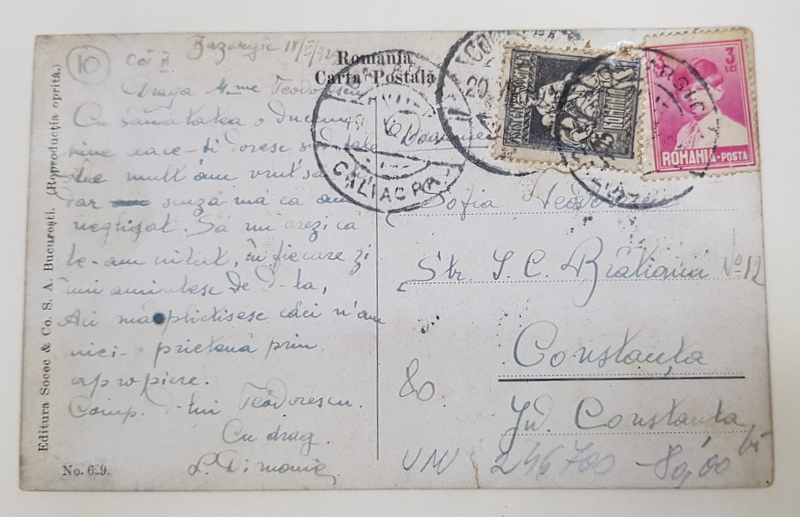 România
Carta Postală
Bazargic
Draga M-me Teodorescu
Cu sănătatea o ducem
bine ce-ți doresc și d-tale
mult am vrut să
dar scuză-mă că am
neglijat. Să nu crezi că
te-am uitat, în fiecare zi
îmi amintesc de d-ta,
Aci mă plictisesc căci n'am
nici-o prietenă prin
apropiere.
Comp. d-lui Teodorescu.
Cu drag.
L. Dimonie
Editura Socec & Co. S. A. București. (Reproducția oprită.)
No. 629.
CALIACRA
3
LEI
ROMANIA-POSTA
Sofia Teodorescu
Str. I. C. Brătianu No 12
Constanța
Jud. Constanta
80
VM 246700 -80,00
10